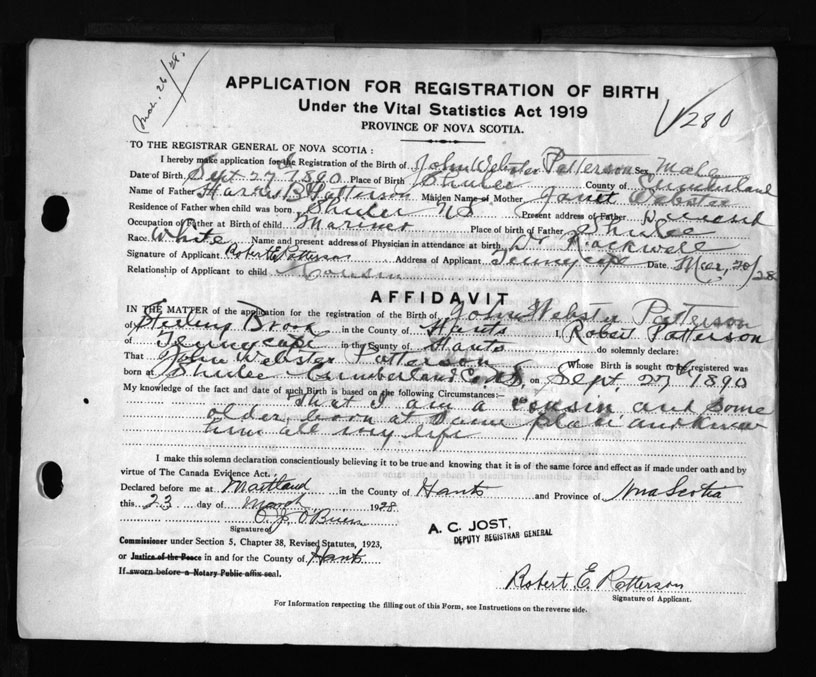 Mar. 26/28.
APPLICATION FOR REGISTRATION OF BIRTH
Under the Vital Statistics Act 1919
280
PROVINCE OF NOVA SCOTIA.
TO THE REGISTRAR GENERAL OF NOVA SCOTIA :
I hereby make application for the Registration of the Birth of John Webster Patterson Sex Male
Date of Birth, Sept 27 1890 Place of Birth Shulee County of Cumberland
Name of Father Patterson Maiden Name of Mother Janet Webster
Residence of Father when child was born Shulee NS Present address of Father
Occupation of Father at Birth of child Mariner Place of birth of Father Shulee
Race White Name and present address of Physician in attendance at birth Dr Rockwell
Signature of Applicant Robert E Patterson Address of Applicant Tennycape Date
Relationship of Applicant to child Cousin
AFFIDAVIT
IN THE MATTER of the application for the registration of the Birth of John Webster Patterson
of Sterling Brook in the County of Hants I, Robert Patterson
of Tennycape in the County of Hants do solemnly declare:
That John Webster Patterson Whose Birth is sought to be registered was
born at Shulee Cumberland Co NS, on Sept. 27 1890
My knowledge of the fact and date of such Birth is based on the following Circumstances:—
That I am a cousin and some
older, born at same place and knew
him all my life
I make this solemn declaration conscientiously believing it to be true and knowing that it is of the same force and effect as if made under oath and by
virtue of The Canada Evidence Act.
Declared before me at Maitland in the County of Hants and Province of Nova Scotia
this 23 day of March 1928
O'Brien
Signature of
A. C. JOST,
DEPUTY REGISTRAR GENERAL
Commissioner under Section 5, Chapter 38, Revised Statutes, 1923,
or Justice of the Peace in and for the County of Hants
If sworn before a Notary Public affix seal.
Robert E. Patterson
Signature of Applicant.
For Information respecting the filling out of this Form, see Instructions on the reverse side.